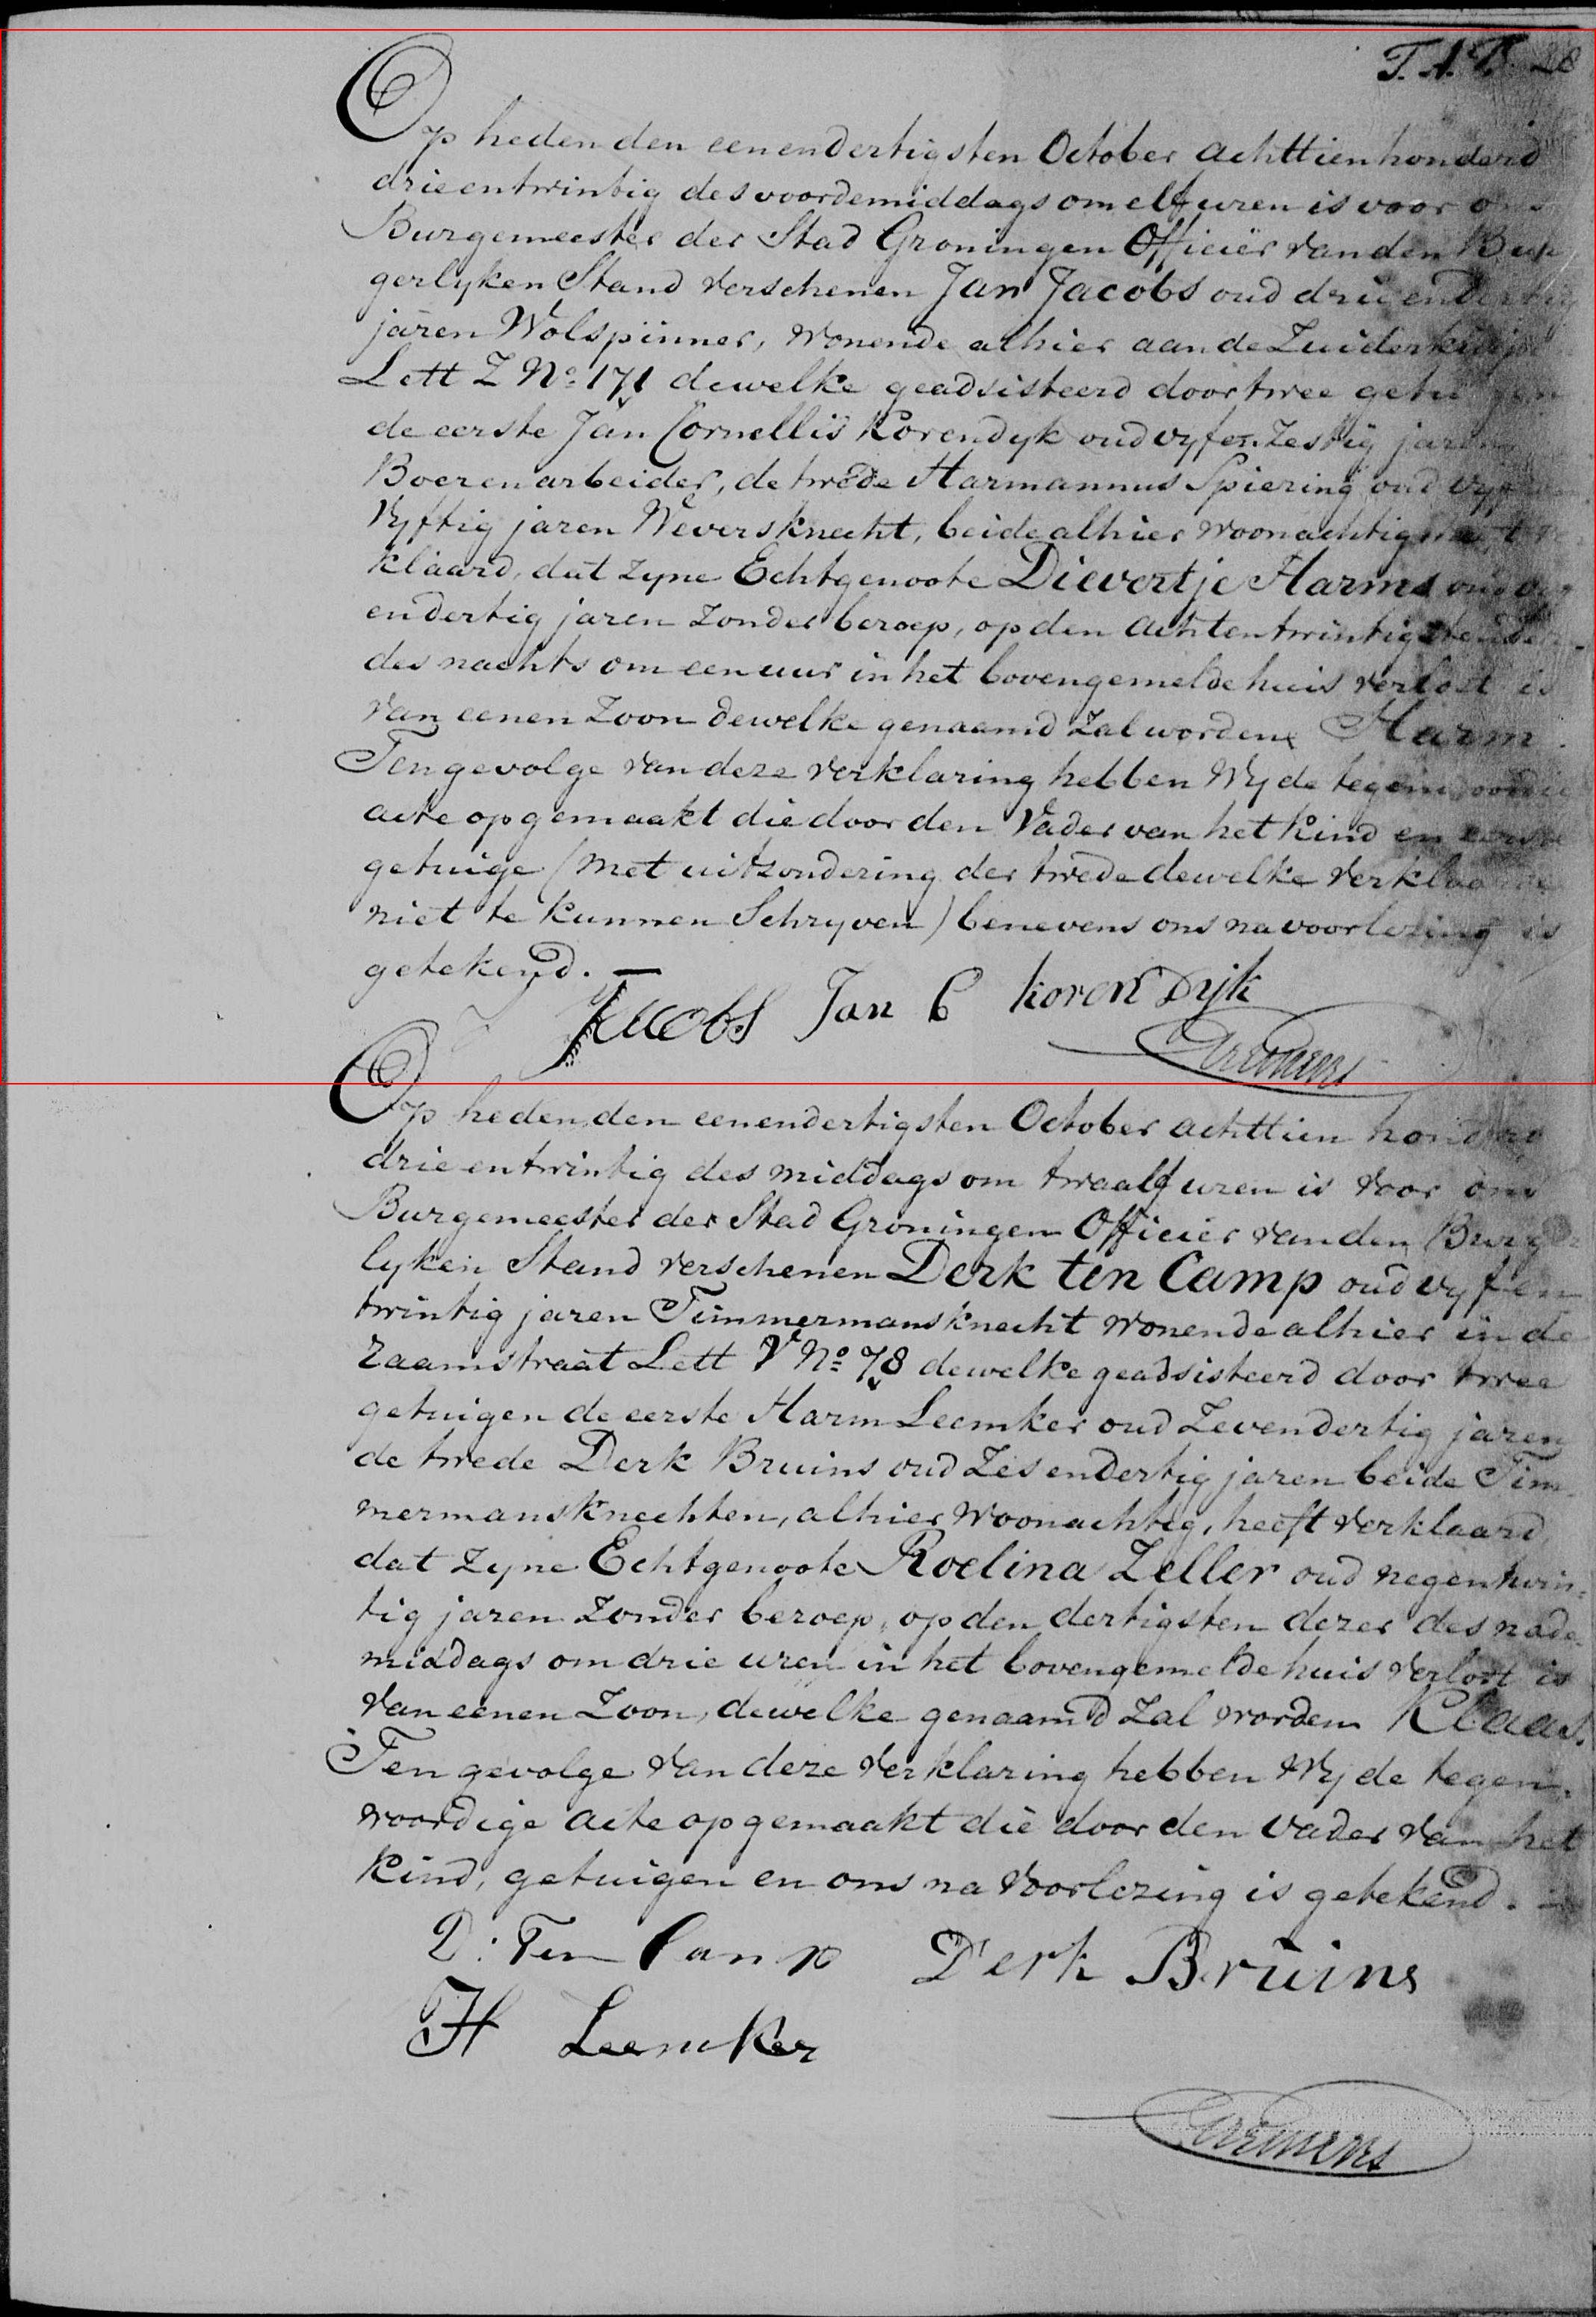 T. A. B. 28
Op heden den eenendertigsten October achttienhonderd
drieentwintig des voordemiddags om elf uren is voor ons
Burgemeester der Stad Groningen Officiër van den Bur
gerlyken Stand verschenen Jan Jacobs oud drieendertig
jaren Wolspinner, wonende alhier aan de Zuiderkuipe
Lett Z No. 171 dewelke geadsisteerd door twee getuigen
de eerste Jan Cornellis Korendyk oud vyfenzestig jaren
Boerenarbeider, de twede Harmannus Spiering oud vyf
vyftig jaren Weversknecht, beide alhier woonachtig
klaard, dat zyne Echtgenoote Dievertje Harms oud
endertig jaren zonder beroep, op den achtentwintigsten dezer
des nachts om een uur in het bovengemelde huis verlost is
van eenen Zoon dewelke genaamd zal worden Harm.
Tengevolge van deze verklaring hebben Wy de tegenwoordige
acte opgemaakt die door den Vader van het kind en eerste
getuige (met uitzondering der twede dewelke verklaarde
niet te kunnen Schryven) benevens ons na voorlezing is
getekend. —
Jacobs Jan C koren Dijk
Op heden den eenendertigsten October achttien honderd
drieentwintig des middags om twaalf uren is voor ons
Burgemeester der Stad Groningen Officier van den Burger
lyken Stand verschenen Derk ten Camp oud vyfen
twintig jaren Timmermansknecht wonende alhier in de
Raamstraat Lett V No 78 dewelke geadsisteerd door twee
getuigen de eerste Harm Leemker oud Zevendertig jaren
de twede Derk Bruins oud Zesendertig jaren beide Tim
mermansknechten, alhier woonachtig, heeft verklaard,
dat zyne Echtgenoote Roelina Zeller oud negentwin=
tig jaren zonder beroep, op den dertigsten dezer des nade
middags om drie uren in het bovengemelde huis verlost is
van eenen Zoon, dewelke genaamd zal worden Klaas.
Tengevolge van deze verklaring hebben Wy de tegen-
woordige acte opgemaakt die door den vader van het
kind, getuigen en ons na voorlezing is getekend. —
D: Ten Camp Derk Bruins
H Leemker